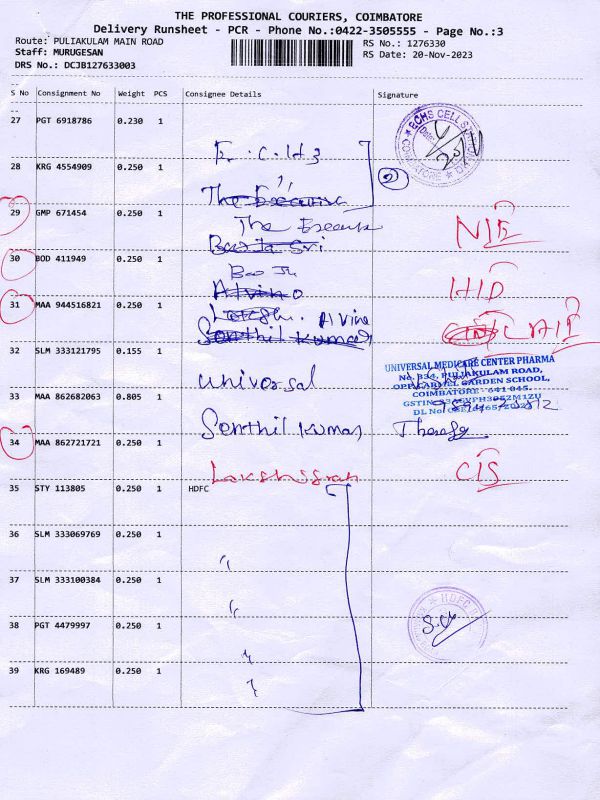 THE PROFESSIONAL COURIERS, COIMBATORE
Delivery Runsheet - PCR - Phone No.:0422-3505555 - Page No.:3
Route: PULIAKULAM MAIN ROAD
RS No.: 1276330
Staff: MURUGESAN
RS Date: 20-Nov-2023
DRS No.: DCJB127633003
S No Consignment No Weight PCS Consignee Details Signature
27 PGT 6918786 0.230 1
ECHS CELL
COIMBATORE
28 KRG 4554909 0.250 1
2
29 GMP 671454 0.250 1
The
30 BOD 411949 0.250 1
HID
31 MAA 944516821 0.250 1
Alvino
Senthil Kumar
32 SLM 333121795 0.155 1
universal
UNIVERSAL MEDICARE CENTER PHARMA
No. 334, PULIAKULAM ROAD,
OPP. CARMEL GARDEN SCHOOL,
COIMBATORE - 641 045.
33 MAA 862682063 0.805 1
Senthil Kumar
34 MAA 862721721 0.250 1
35 STY 113805 0.250 1 HDFC
36 SLM 333069769 0.250 1
37 SLM 333100384 0.250 1
38 PGT 4479997 0.250 1
39 KRG 169489 0.250 1